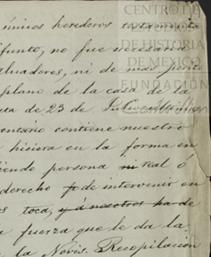 únicos herederos testamenta
difunto, no fue necesario
valuadores, ni de más
plano de la casa de la
de 23 de
mentario contiene nuestro
hisiera en la forma en
siendo persona ni real ó
derecho de intervenir en
toca, y á nosotros ha de
fuerza que le da la
la Novís. Recopilación
CENTRO DE
DE HISTORIA
DE MEXICO
FUNDACIÓN